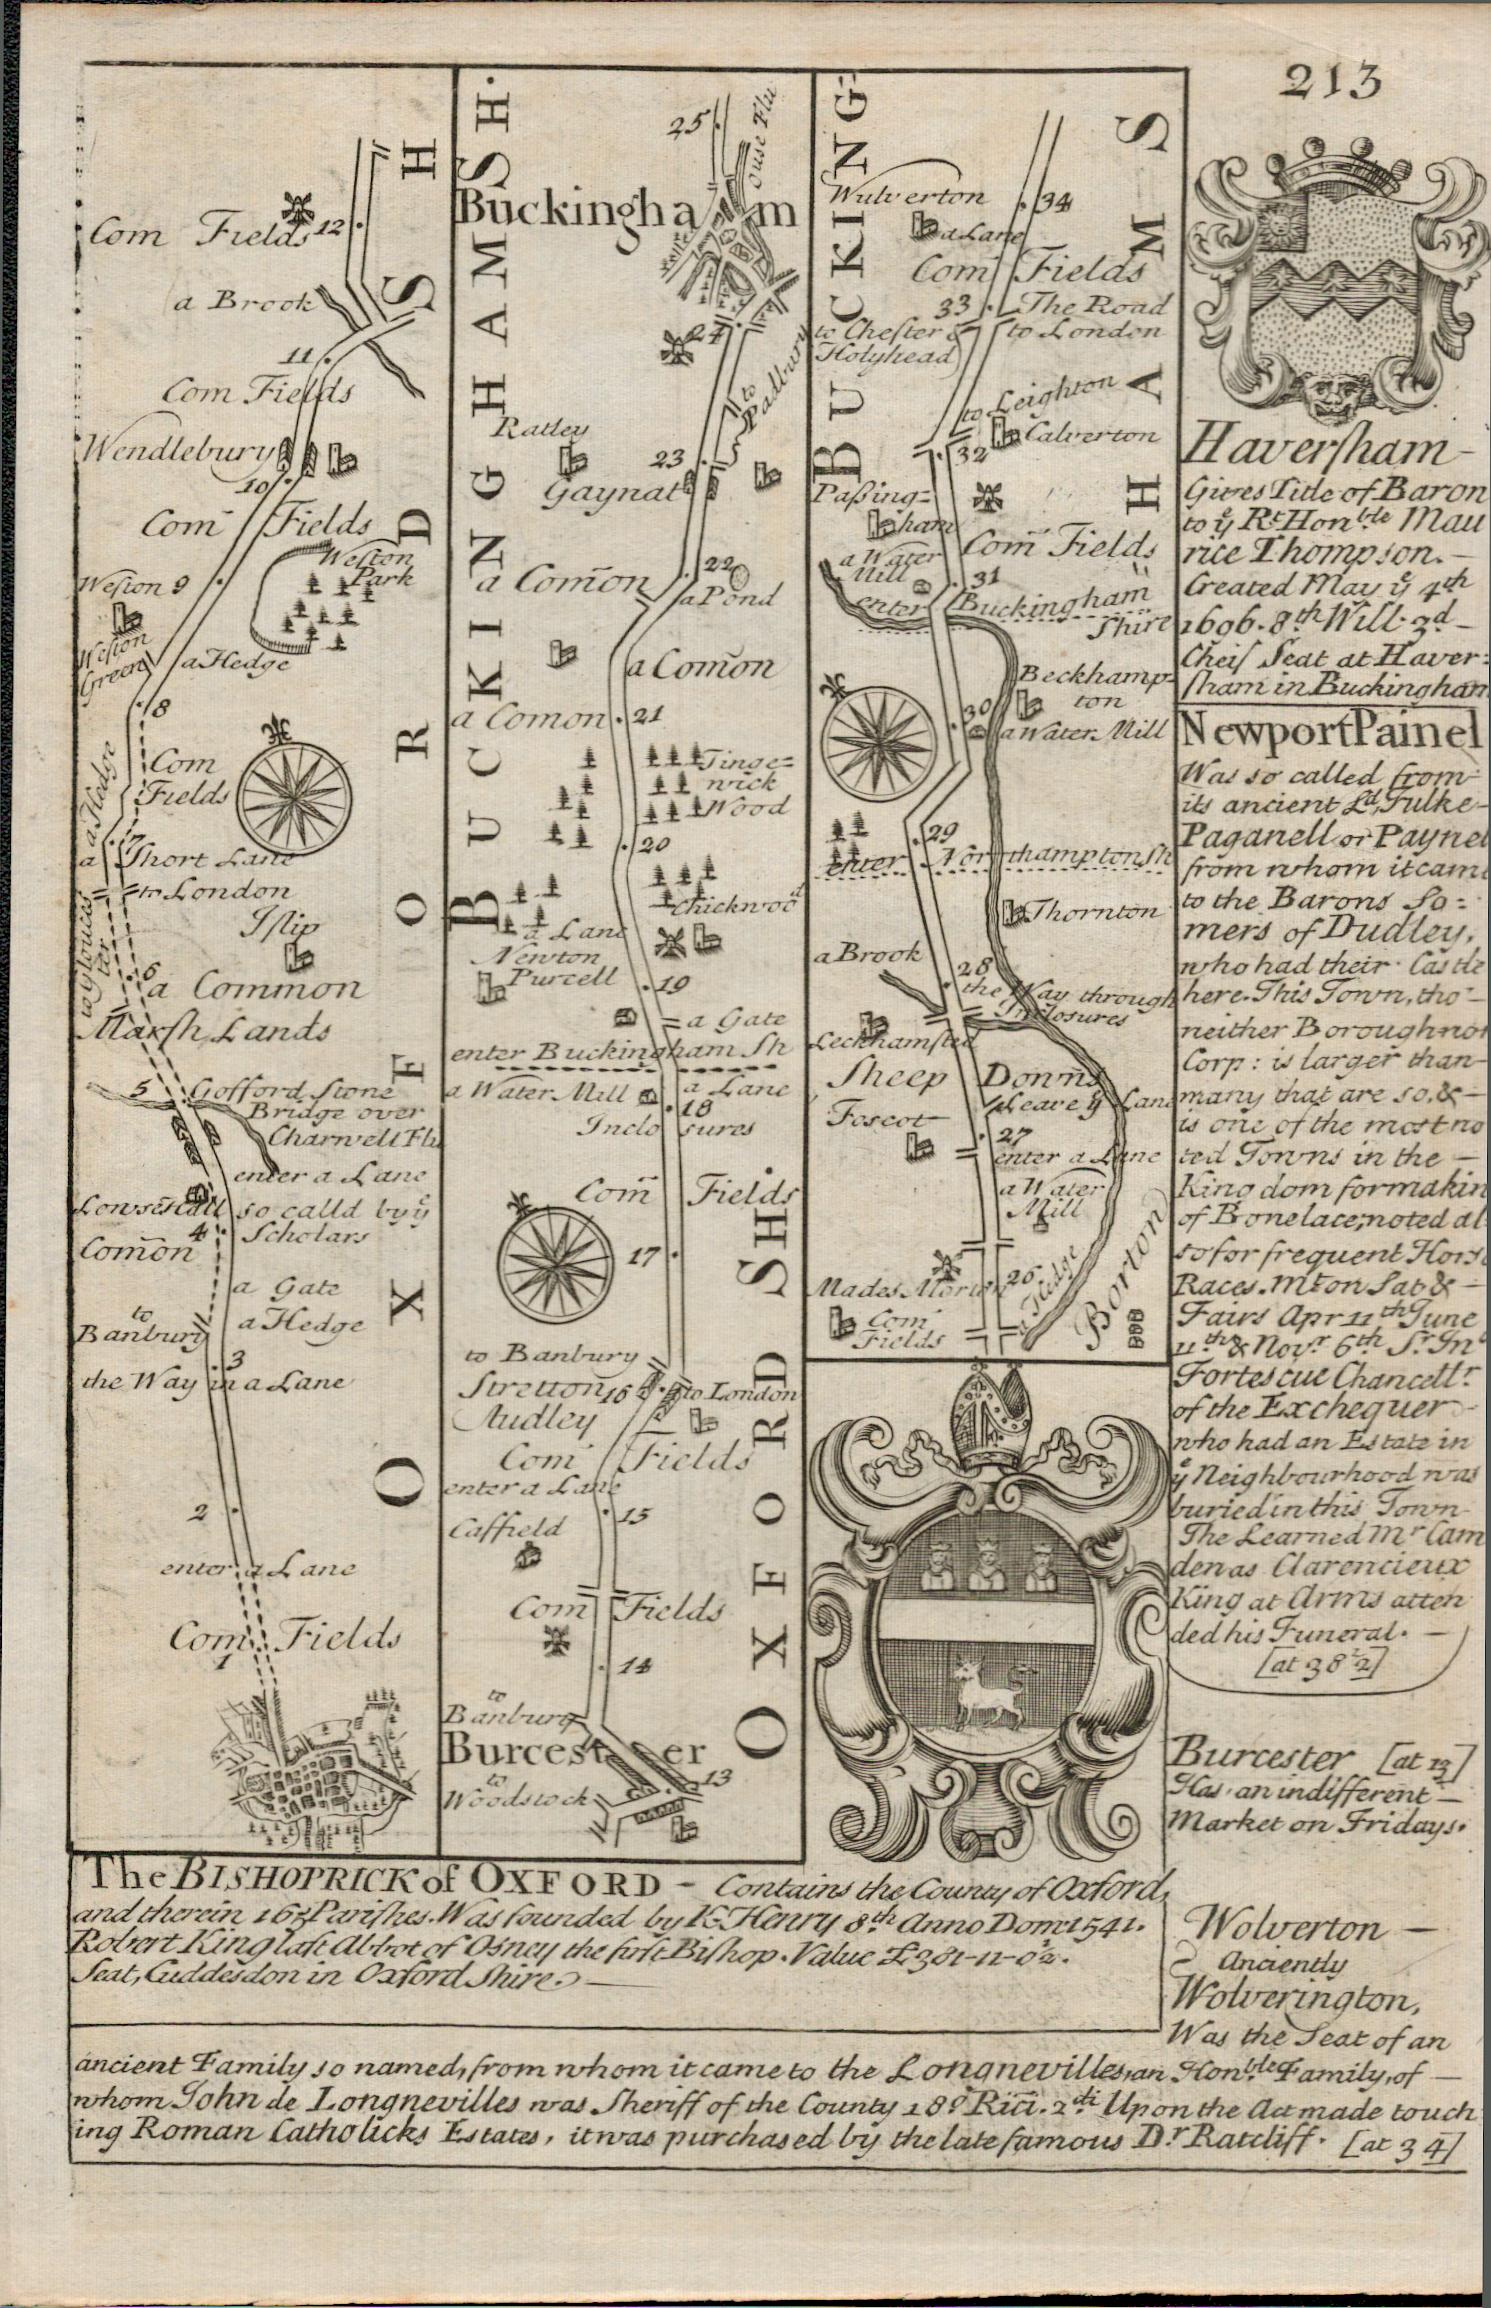 213
Com Fields
12
a Brook
11
Com Fields
Wendlebury
10
Com Fields
Weston
Park
Weston 9
Weston
Green
a Hedge
8
a Hedge
Com
Fields
7
a Short Lane
to London
Islip
6
a Common
Marsh Lands
5
Gofford Stone
Bridge over
Charwell Flu
enter a Lane
so calld by yͤ
Scholars
4
Comōn
a Gate
to
Banbury
a Hedge
3
the Way in a Lane
2
enter a Lane
Com Fields
1
OXFORD SH
25
Ouse Flu
Buckingham
24
to
Padbury
Ratley
23
Gaynat
22
a Comōn
a Pond
a Comōn
a Comon
21
Tinge=
wick
Wood
20
Chickwood
a Lane
Newton
Purcell
19
a Gate
enter Buckingham Sh
a Water Mill
a Lane
18
Inclo sures
Com̄ Fields
17
to Banbury
Stretton
16
to London
Audley
Com Fields
enter a Lane
15
Caffield
Com Fields
14
to
Banbury
Burcester
to
Woodstock
13
BUCKINGHAMSH.
OXFORD SH.
Wulverton
34
a Lane
Com Fields
33
The Road
to London
to Chester &
Holyhead
to Leighton
Calverton
32
Passing=
ham
Com Fields
a Water
Mill
31
enter Buckingham
Shire
Beckhamp=
ton
30
a Water Mill
29
enter Northampton Sh
Thornton
a Brook
28
the Way through
Inclosures
Leckhamsted
Sheep Downs
Leave yͤ Lane
Foscot
27
enter a Lane
a Water
Mill
26
Mades Morton
a Hedge
Borton
Com
Fields
BUCKING=
HAMS
Haversham—
Gives Title of Baron
to yͤ Rt Honble Mau
rice Thompson.—
Created May yͤ 4th
1696. 8th Will. 3d—
Cheif Seat at Haver=
sham in Buckingham
Newport Painel
Was so called from
its ancient Ld, Fulke—
Paganell or Paynel
from whom it came
to the Barons So=
mers of Dudley,
who had their Castle
here. This Town, tho'—
neither Borough nor
Corp: is larger than—
many that are so, &—
is one of the most no
ted Towns in the—
Kingdom for makin
of Bonelace; noted al
so for frequent Hors
Races. Mt on Sat &—
Fairs Apr 11th June
11th & Novr 6th Sr Jno
Fortescue Chancellr
of the Exchequer—
who had an Estate in
yͤ Neighbourhood was
buried in this Town
The Learned Mr Cam
den as Clarencieux
King at Arms atten
ded his Funeral.—
[at 38½]
Burcester [at 13]
Has an indifferent—
Market on Fridays.
The BISHOPRICK of OXFORD — Contains the County of Oxford,
and therein Parishes. Was founded by K. Henry 8th Anno Dom: 1541.
Robert King last Abbot of Osney the first Bishop. Value £381-11-0½.
Seat, Cuddesdon in Oxford Shire.—
Wolverton—
Anciently
Wolverington,
Was the Seat of an
ancient Family so named, from whom it came to the Longnevilles, an Honble Family, of—
whom John de Longnevilles was Sheriff of the County 18º Rici. 2di Upon the Act made touch
ing Roman Catholicks Estates, it was purchased by the late famous Dr Ratcliff. [at 34]